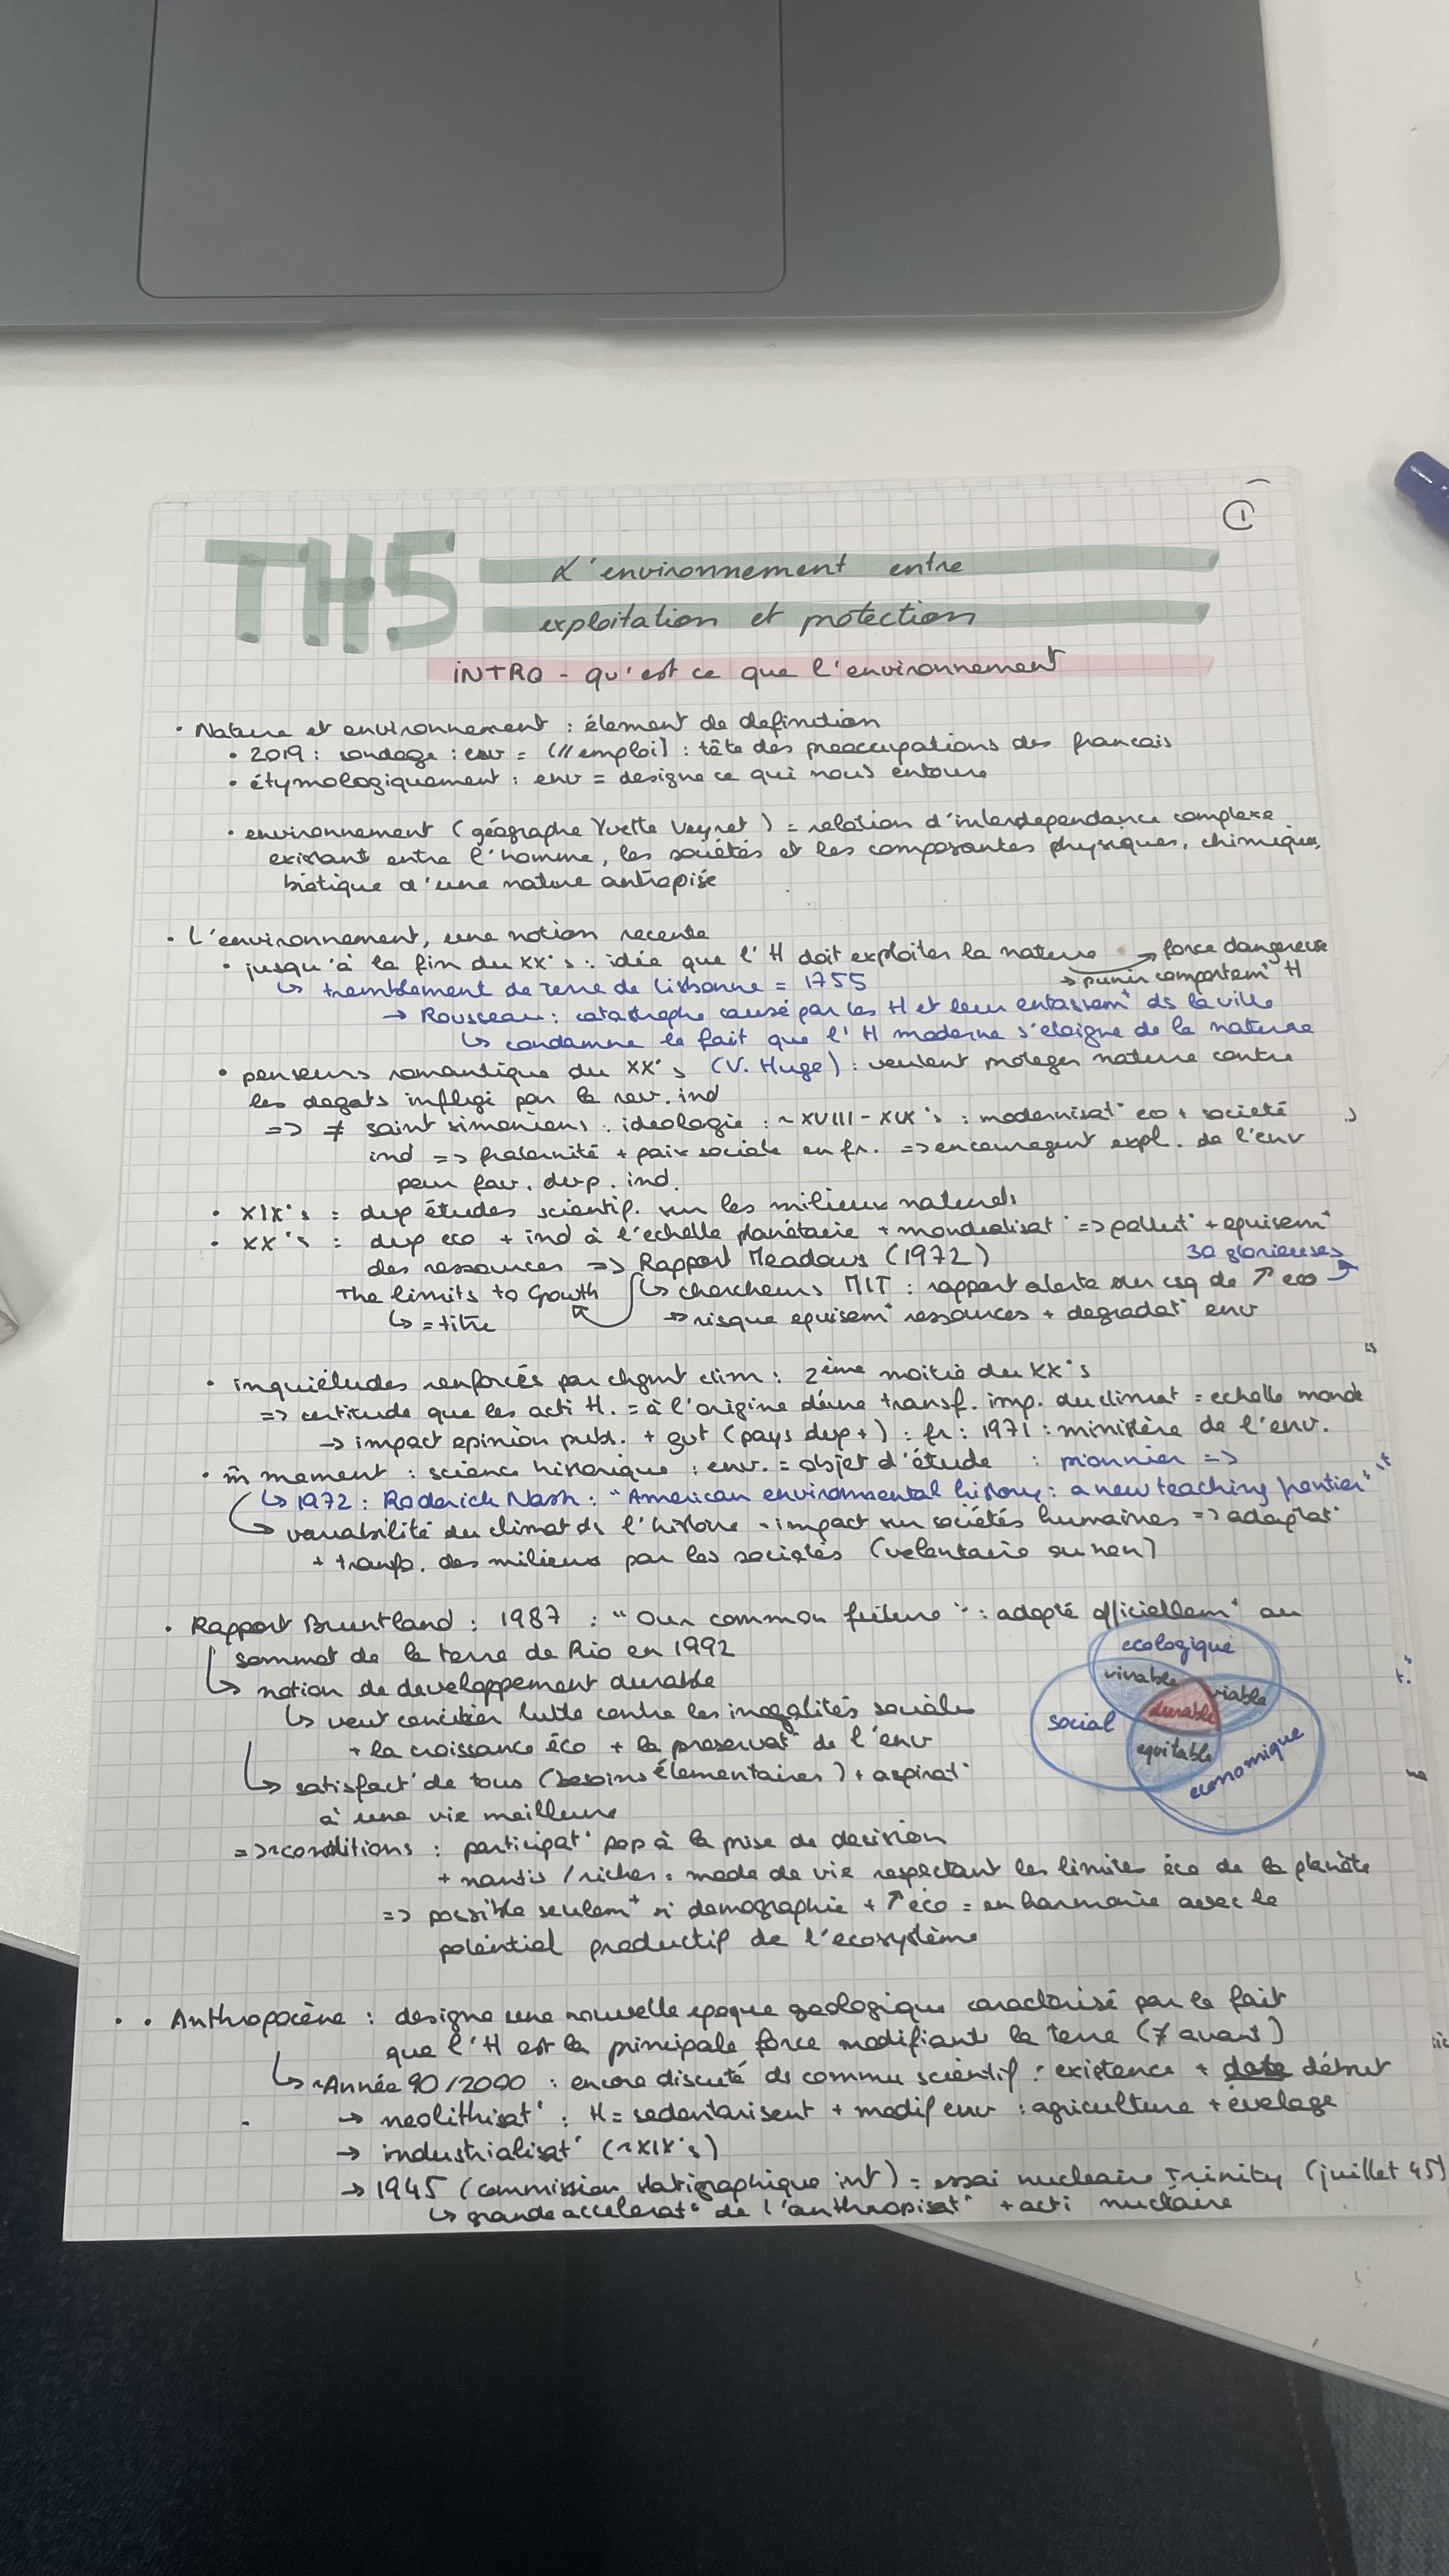 ①
TH5 L'environnement entre
exploitation et protection
INTRO - qu'est ce que l'environnement
• Nature et environnement : élement de definition
• 2019 : sondage : env = (// emploi) : tête des preoccupations des francais
• étymologiquement : env = designe ce qui nous entoure
• environnement (géographe Yvette Veyret) = relation d'interdependance complexe
existant entre l'homme, les sociétés et les composantes physiques, chimiques,
biotique d'une nature antropisé
• L'environnement, une notion recente
• jusqu'à la fin du XX°s : idée que l'H doit exploiter la nature → force dangereuse
→ punir comportem^t H
↳ tremblement de terre de Lisbonne = 1755
→ Rousseau : catastrophe causé par les H et leur entassem^t ds la ville
↳ condamne le fait que l'H moderne s'éloigne de la nature
• penseurs romantique du XX°s (V. Hugo) : veulent proteger nature contre
les degats infligé par la rev. ind
=> ≠ saint simoniens : ideologie : ~ XVIII - XIX°s : modernisat° eco + societé
ind => fraternité + paix sociale en fr. => encouragent expl. de l'env
pour fav. dvp. ind.
• XIX°s = dvp études scientif. sur les milieux naturels
• XX°s = dvp eco + ind à l'echelle planétaire + mondialisat° => pollut° + epuisem^t
des ressources => Rapport Meadows (1972) 30 glorieuses
The limits to Growth ↳ chercheurs MIT : rapport alerte sur csq de ↗ eco
↳ = titre → risque epuisem^t ressources + degradat° env
• inquiétudes renforcés par chgmt clim : 2ème moitié du XX°s
=> certitude que les acti H. = à l'origine d'une transf. imp. du climat = echelle monde
→ impact opinion publ. + gvt (pays dvp+) : fr : 1971 : ministère de l'env.
• m̂ moment : science historique : env. = objet d'étude : pionnier =>
↳ 1972 : Roderick Nash : "American environmental history : a new teaching frontier"
↳ variabilité du climat ds l'histoire - impact sur sociétés humaines => adaptat°
+ transfo. des milieux par les sociétés (volontaire ou non)
• Rapport Bruntland : 1987 : "Our common future" : adopté officiellem^t au
sommet de la terre de Rio en 1992
↳ notion de developpement durable
↳ veut concilier lutte contre les inégalités sociales
+ la croissance éco + la preservat° de l'env
↳ satisfact° de tous (besoins élementaires) + aspirat°
à une vie meilleure
ecologique
vivable viable
durable
social
equitable
economique
=> conditions : participat° pop à la prise de decision
+ nantis / riches = mode de vie respectant les limites éco de la planète
=> possible seulem^t si demographie + ↗ éco = en harmonie avec le
potentiel productif de l'ecosystème
• • Anthropocène : designe une nouvelle epoque geologique caractérisé par le fait
que l'H est la principale force modifiant la terre (≠ avant)
↳ ~Année 90/2000 : encore discuté ds commu scientif : existence + date début
→ neolithisat° : H = sedentarisent + modif env : agriculture + évelage
→ industrialisat° (~XIX°s)
→ 1945 (commission statigraphique int) = essai nucleaire Trinity (juillet 45)
↳ grande accelerat° de l'anthropisat° + acti nucléaire